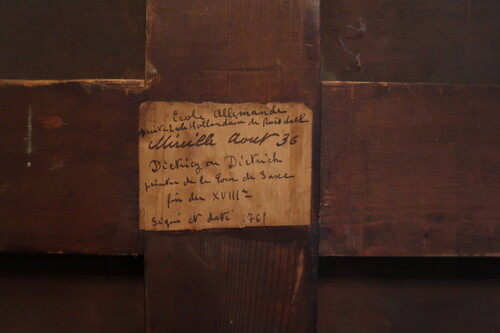 Ecole Allemande
Mireille Aout 36
Dietricy ou Dietrich
peintre de la Cour de Saxe
fin du XVIIIe
Signé et daté 1761